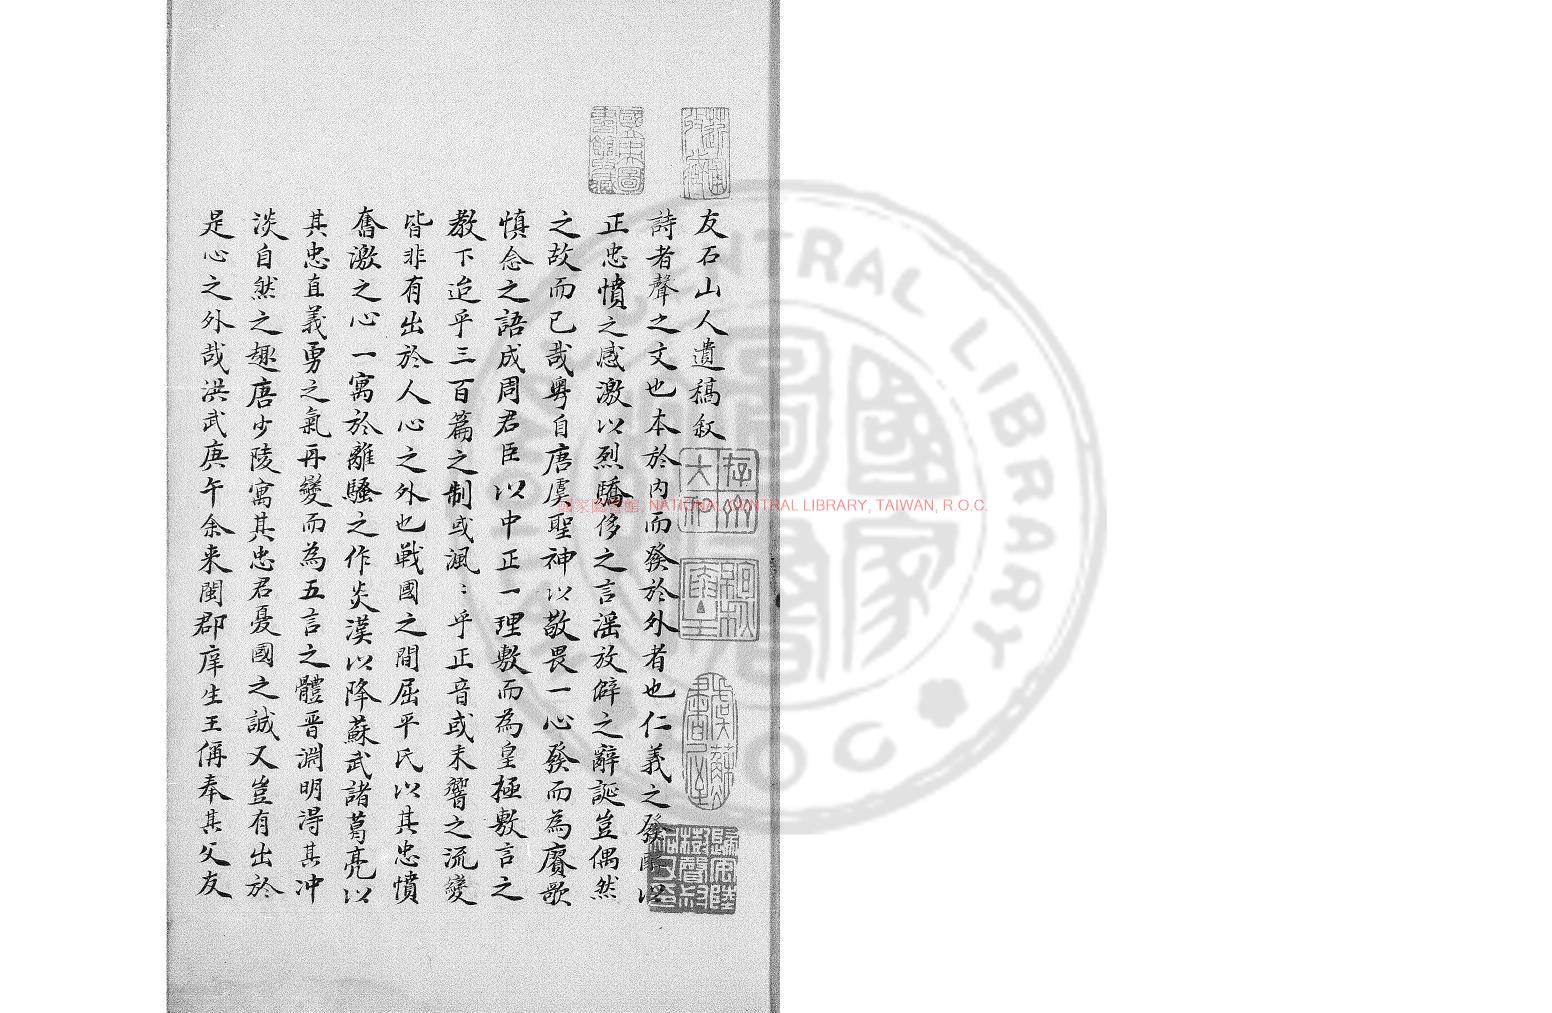 友石山人遺稿叙
詩者聲之文也本於内而發於外者也仁義之發醇以
正忠憤之感激以烈驕侈之言滛放僻之辭誕豈偶然
之故而已哉粤自唐虞聖神以敬畏一心發而為賡歌
慎念之語成周君臣以中正一理敷而為皇極敷言之
教下迨乎三百篇之制或渢:乎正音或末響之流變
皆非有出於人心之外也戰國之間屈平氏以其忠憤
奮激之心一寓於離騷之作炎漢以降蘇武諸葛亮以
其忠直義勇之氣再變而為五言之體晋淵明得其冲
淡自然之趣唐少陵寓其忠君憂國之誠又豈有出於
是心之外哉洪武庚午余来閩郡庠生王偁奉其父友
國家圖書館, NATIONAL CENTRAL LIBRARY, TAIWAN, R.O.C.
NATIONAL CENTRAL LIBRARY
國家圖書館